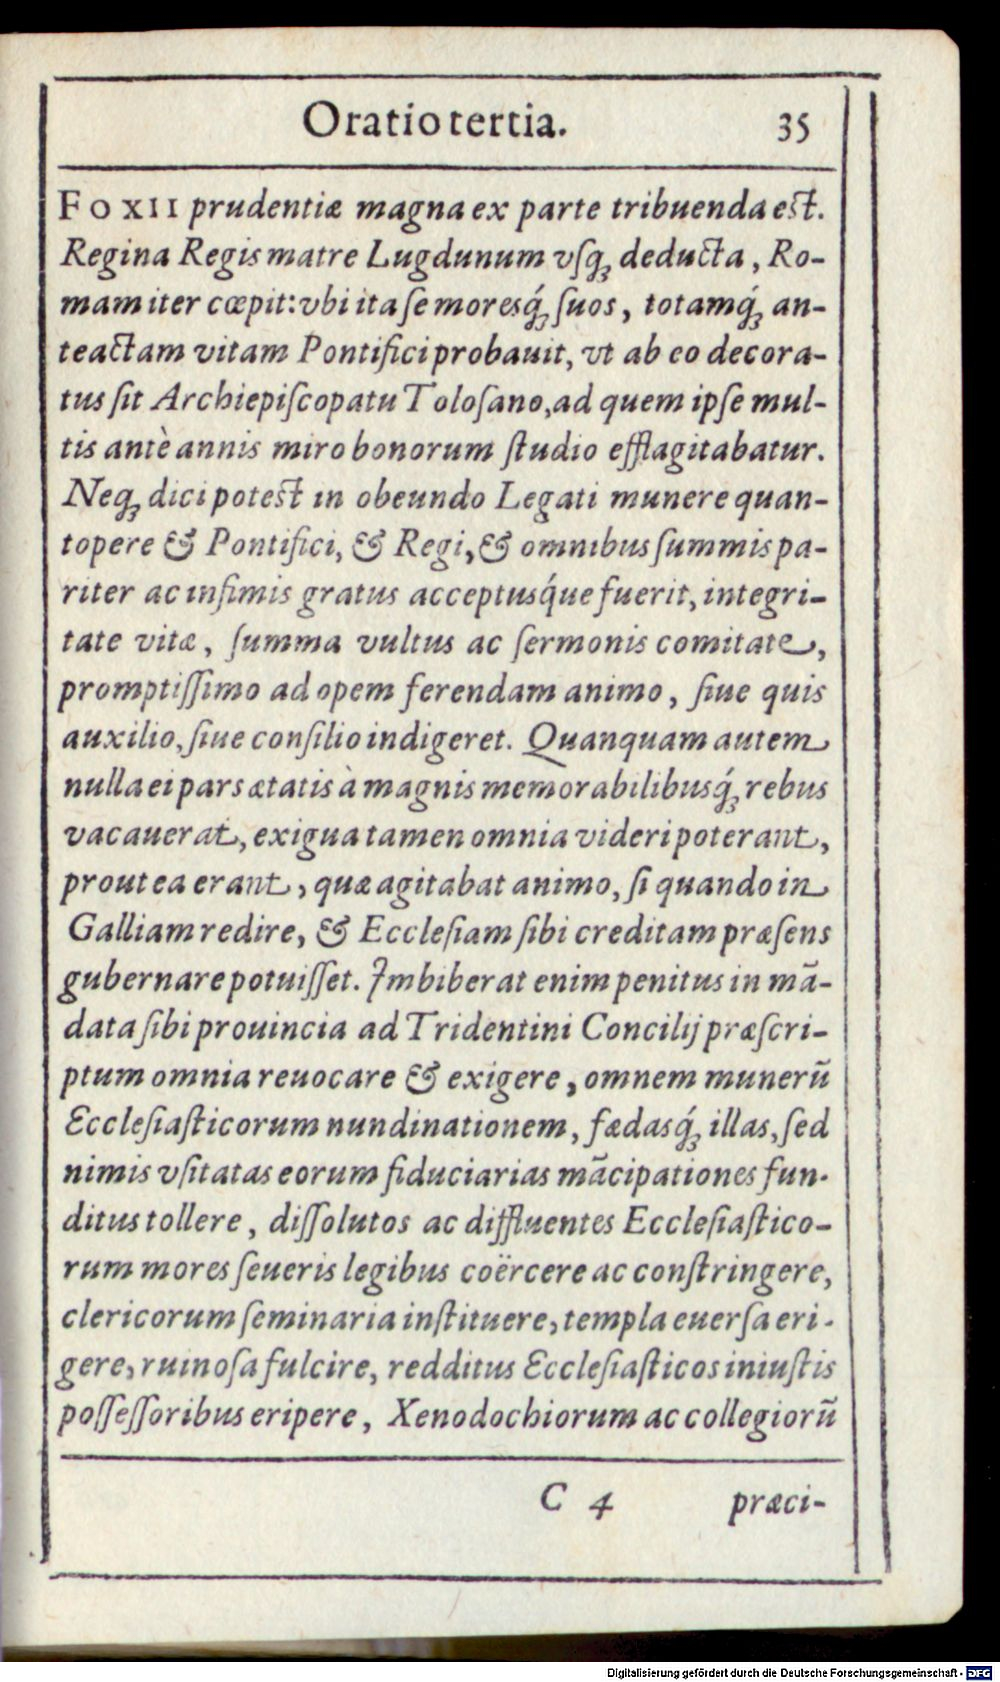 Oratio tertia. 35
FOXII prudentiæ magna ex parte tribuenda est.
Regina Regis matre Lugdunum vſq́ꝫ deducta, Ro-
mam iter cœpit: vbi ita ſe moresq́ꝫ ſuos, totamq́ꝫ an-
teactam vitam Pontifici probauit, vt ab eo decora-
tus ſit Archiepiſcopatu Toloſano, ad quem ipſe mul-
tis antè annis miro bonorum ſtudio efflagitabatur.
Neqꝫ dici potest in obeundo Legati munere quan-
topere & Pontifici, & Regi, & omnibus ſummis pa-
riter ac infimis gratus acceptusq́ue fuerit, integri-
tate vitæ, ſumma vultus ac ſermonis comitate,
promptiſſimo ad opem ferendam animo, ſiue quis
auxilio, ſiue conſilio indigeret. Quanquam autem
nulla ei pars ætatis à magnis memorabilibusq́ꝫ rebus
vacauerat, exigua tamen omnia videri poterant,
prout ea erant, quæ agitabat animo, ſi quando in
Galliam redire, & Eccleſiam ſibi creditam præſens
gubernare potuiſſet. Imbiberat enim penitus in mā-
data ſibi prouincia ad Tridentini Concilij præſcri-
ptum omnia reuocare & exigere, omnem munerū
Eccleſiaſticorum nundinationem, fœdasq́ꝫ illas, ſed
nimis vſitatas eorum fiduciarias mācipationes fun-
ditus tollere, diſſolutos ac diffluentes Eccleſiaſtico-
rum mores ſeueris legibus coërcere ac conſtringere,
clericorum ſeminaria inſtituere, templa euerſa eri-
gere, ruinoſa fulcire, redditus Eccleſiaſticos iniuſtis
poſſeſſoribus eripere, Xenodochiorum ac collegiorū
C 4 præci-
Digitalisierung gefördert durch die Deutsche Forschungsgemeinschaft - DFG